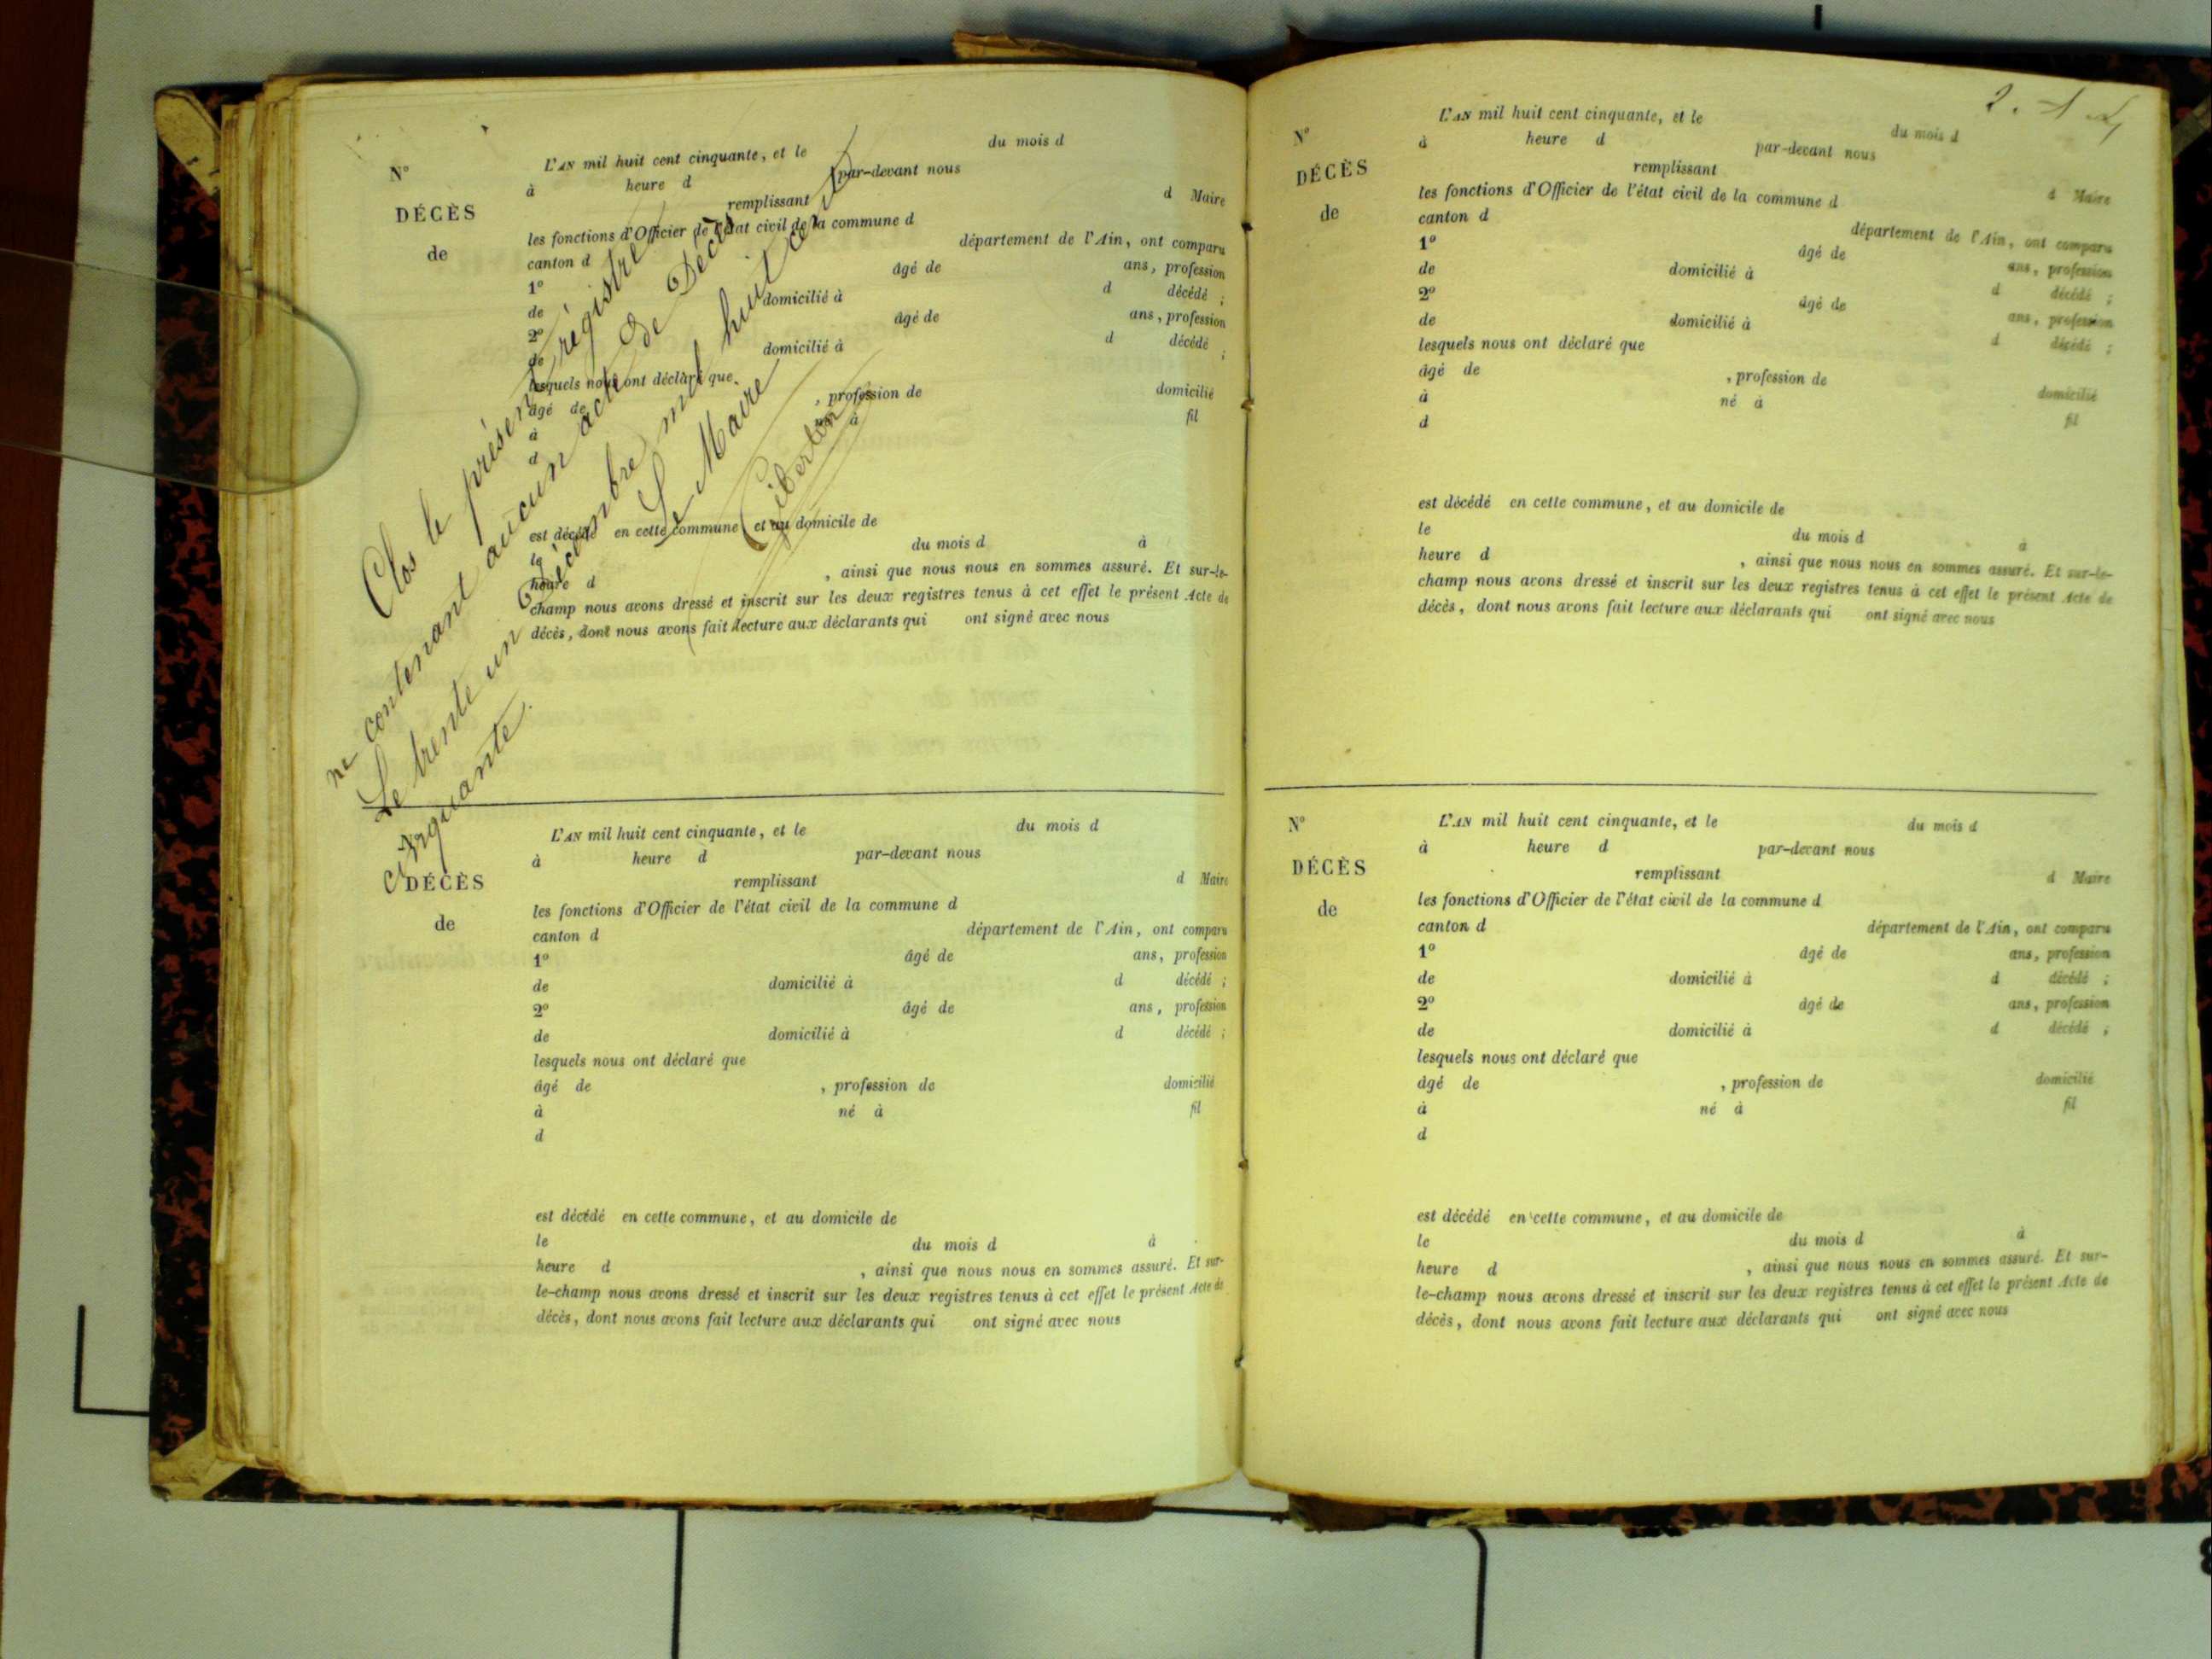 N°
DÉCÈS
de
L'AN mil huit cent cinquante, et le du mois d
à heure d par-devant nous
remplissant d Maire
les fonctions d'Officier de l'état civil de la commune d
canton d département de l'Ain, ont comparu
1° âgé de ans, profession
de domicilié à d décédé ;
2° âgé de ans, profession
de domicilié à d décédé ;
lesquels nous ont déclaré que
âgé de , profession de domicilié
à né à fil
d
est décédé en cette commune, et au domicile de
le du mois d à
heure d , ainsi que nous nous en sommes assuré. Et sur-le-
champ nous avons dressé et inscrit sur les deux registres tenus à cet effet le présent Acte de
décès, dont nous avons fait lecture aux déclarants qui ont signé avec nous
Clos le présent régistre
ne contenant aucun acte de Décès
Le trente un Décembre mil huit cent
cinquante.
Le Maire
DÉCÈS
de
L'AN mil huit cent cinquante, et le du mois d
à heure d par-devant nous
remplissant d Maire
les fonctions d'Officier de l'état civil de la commune d
canton d département de l'Ain, ont comparu
1° âgé de ans, profession
de domicilié à d décédé ;
2° âgé de ans, profession
de domicilié à d décédé ;
lesquels nous ont déclaré que
âgé de , profession de domicilié
à né à fil
d
est décédé en cette commune, et au domicile de
le du mois d à
heure d , ainsi que nous nous en sommes assuré. Et sur-
le-champ nous avons dressé et inscrit sur les deux registres tenus à cet effet le présent Acte de
décès, dont nous avons fait lecture aux déclarants qui ont signé avec nous
N°
DÉCÈS
de
L'AN mil huit cent cinquante, et le du mois d
à heure d par-devant nous
remplissant d Maire
les fonctions d'Officier de l'état civil de la commune d
canton d département de l'Ain, ont comparu
1° âgé de ans, profession
de domicilié à d décédé ;
2° âgé de ans, profession
de domicilié à d décédé ;
lesquels nous ont déclaré que
âgé de , profession de domicilié
à né à fil
d
est décédé en cette commune, et au domicile de
le du mois d à
heure d , ainsi que nous nous en sommes assuré. Et sur-le-
champ nous avons dressé et inscrit sur les deux registres tenus à cet effet le présent Acte de
décès, dont nous avons fait lecture aux déclarants qui ont signé avec nous
N°
DÉCÈS
de
L'AN mil huit cent cinquante, et le du mois d
à heure d par-devant nous
remplissant d Maire
les fonctions d'Officier de l'état civil de la commune d
canton d département de l'Ain, ont comparu
1° âgé de ans, profession
de domicilié à d décédé ;
2° âgé de ans, profession
de domicilié à d décédé ;
lesquels nous ont déclaré que
âgé de , profession de domicilié
à né à fil
d
est décédé en cette commune, et au domicile de
le du mois d à
heure d , ainsi que nous nous en sommes assuré. Et sur-
le-champ nous avons dressé et inscrit sur les deux registres tenus à cet effet le présent Acte de
décès, dont nous avons fait lecture aux déclarants qui ont signé avec nous